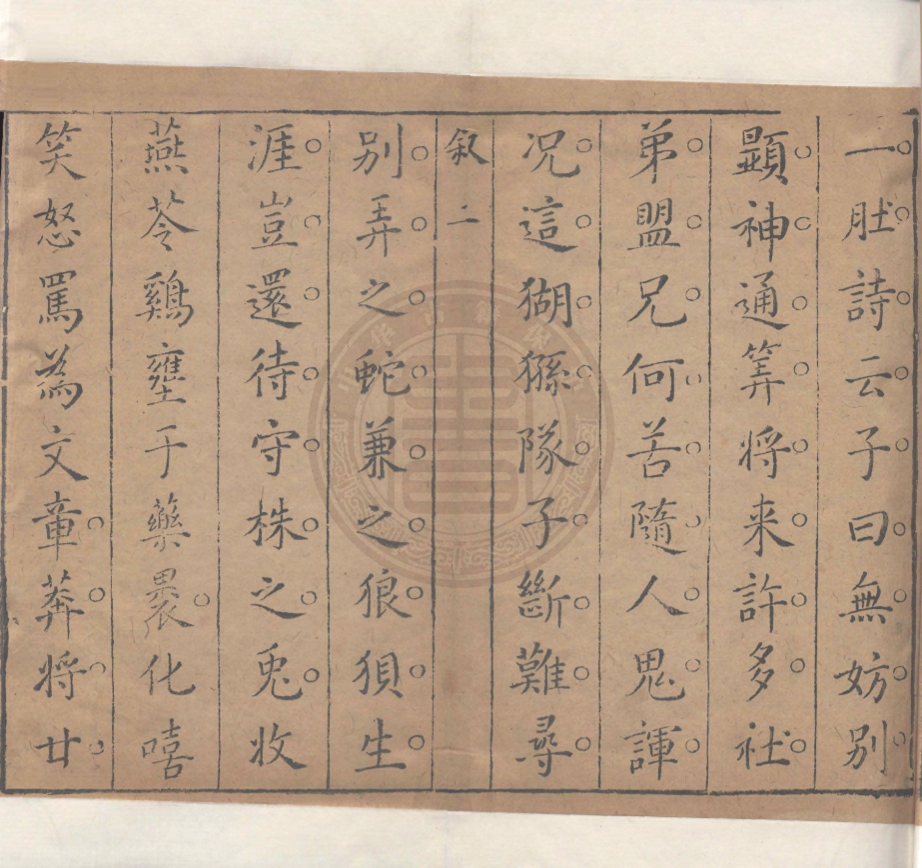 一肚詩云子曰無妨別
顯神通筭将来許多社
弟盟兄何苦隨人鬼諢
况這猢猻隊子斷難尋
叙二
别弄之蛇兼之狼狽生
涯豈還待守株之兎收
燕苓鷄壅于藥裹化嘻
笑怒罵為文章莽将廿